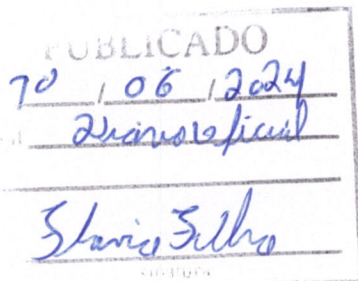 PUBLICADO
10 / 06 / 2024
Diário oficial
Flavia Silha